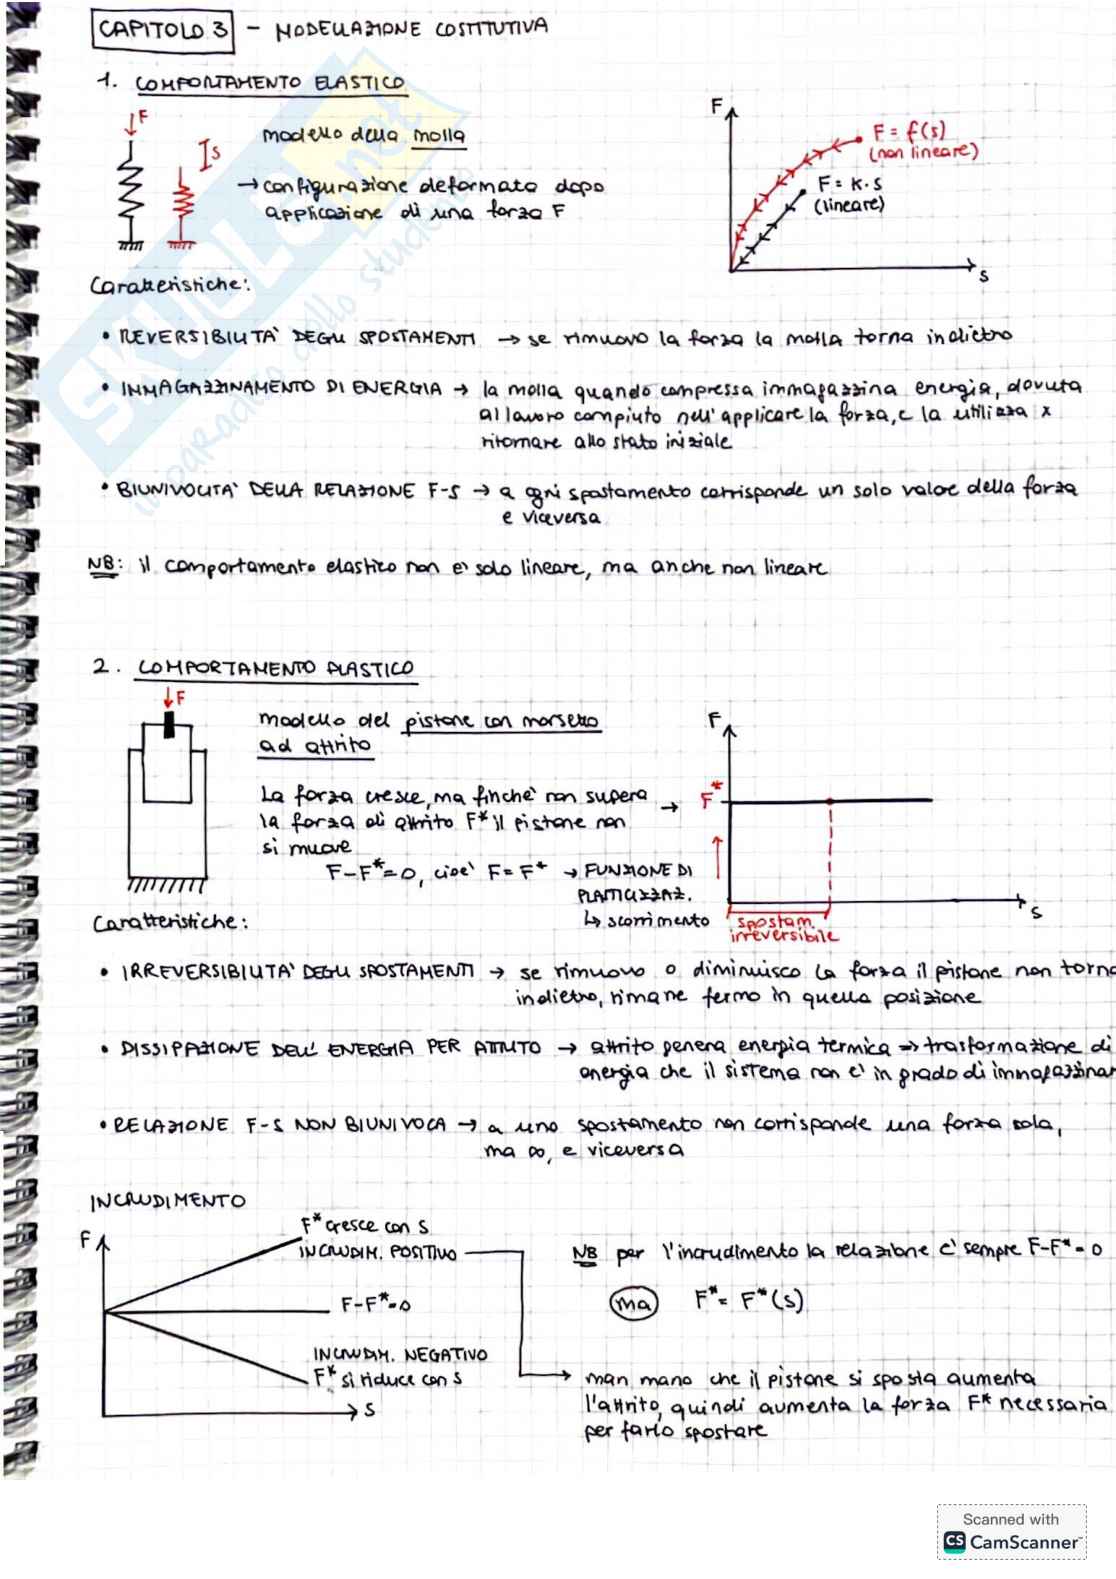 CAPITOLO 3 - MODELLAZIONE COSTITUTIVA
1. COMPORTAMENTO ELASTICO
F
S
modello della molla
→ configurazione deformata dopo
applicazione di una forza F
F
F = f(s)
(non lineare)
F = K·s
(lineare)
S
Caratteristiche:
• REVERSIBILITA' DEGLI SPOSTAMENTI → se rimuovo la forza la molla torna indietro
• IMMAGAZZINAMENTO DI ENERGIA → la molla quando compressa immagazzina energia, dovuta
al lavoro compiuto nell'applicare la forza, e la utilizza x
ritornare allo stato iniziale
• BIUNIVOCITA' DELLA RELAZIONE F-S → a ogni spostamento corrisponde un solo valore della forza
e viceversa
NB: il comportamento elastico non è solo lineare, ma anche non lineare
2. COMPORTAMENTO PLASTICO
F
modello del pistone con morsetto
ad attrito
La forza cresce, ma finchè non supera →
la forza di attrito F* il pistone non
si muove
F-F*=0, cioè F=F* → FUNZIONE DI
PLASTICIZZAZ.
↳ scorrimento
F
F*
S
spostam.
irreversibile
Caratteristiche:
• IRREVERSIBILITA' DEGLI SPOSTAMENTI → se rimuovo o diminuisco la forza il pistone non torna
indietro, rimane fermo in quella posizione
• DISSIPAZIONE DELL' ENERGIA PER ATTRITO → attrito genera energia termica => trasformazione di
energia che il sistema non è in grado di immagazzinar
• RELAZIONE F-S NON BIUNIVOCA → a uno spostamento non corrisponde una forza sola,
ma ∞, e viceversa
INCRUDIMENTO
F
F* cresce con S
INCRUDIM. POSITIVO
F-F*=0
INCRUDIM. NEGATIVO
F* si riduce con S
S
NB per l'incrudimento la relazione è sempre F-F*=0
ma F* = F*(s)
man mano che il pistone si sposta aumenta
l'attrito, quindi aumenta la forza F* necessaria
per farlo spostare
SKUOLA.net
il paradiso dello studente
Scanned with
CS CamScanner